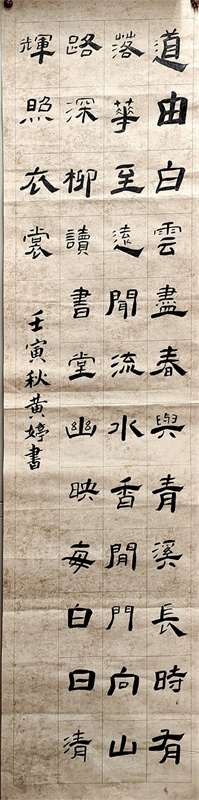 道由白雲盡春與青溪長時有
落華至遠聞流水香閒門向山
路深柳讀書堂幽映每白日清
輝照衣裳
壬寅秋黃婷書